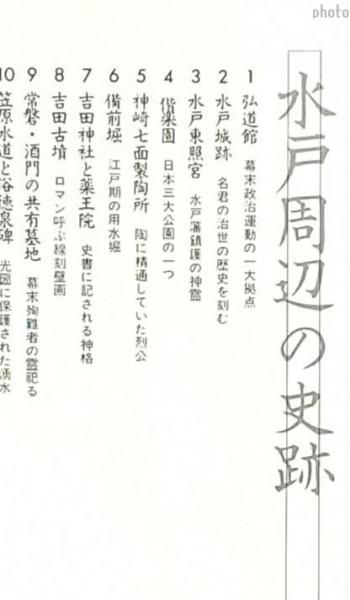 photo
水戸周辺の史跡
1 弘道館 幕末政治運動の一大拠点
2 水戸城跡 名君の治世の歴史を刻む
3 水戸東照宮 水戸藩鎮護の神霊
4 偕楽園 日本三大公園の一つ
5 神崎七面製陶所 陶に精通していた烈公
6 備前堀 江戸期の用水堀
7 吉田神社と薬王院 史書に記される神格
8 吉田古墳 ロマン呼ぶ線刻壁画
9 常磐・酒門の共有墓地 幕末殉難者の霊祀る
10 笠原水道と浴徳泉碑 光圀に保護された湧水